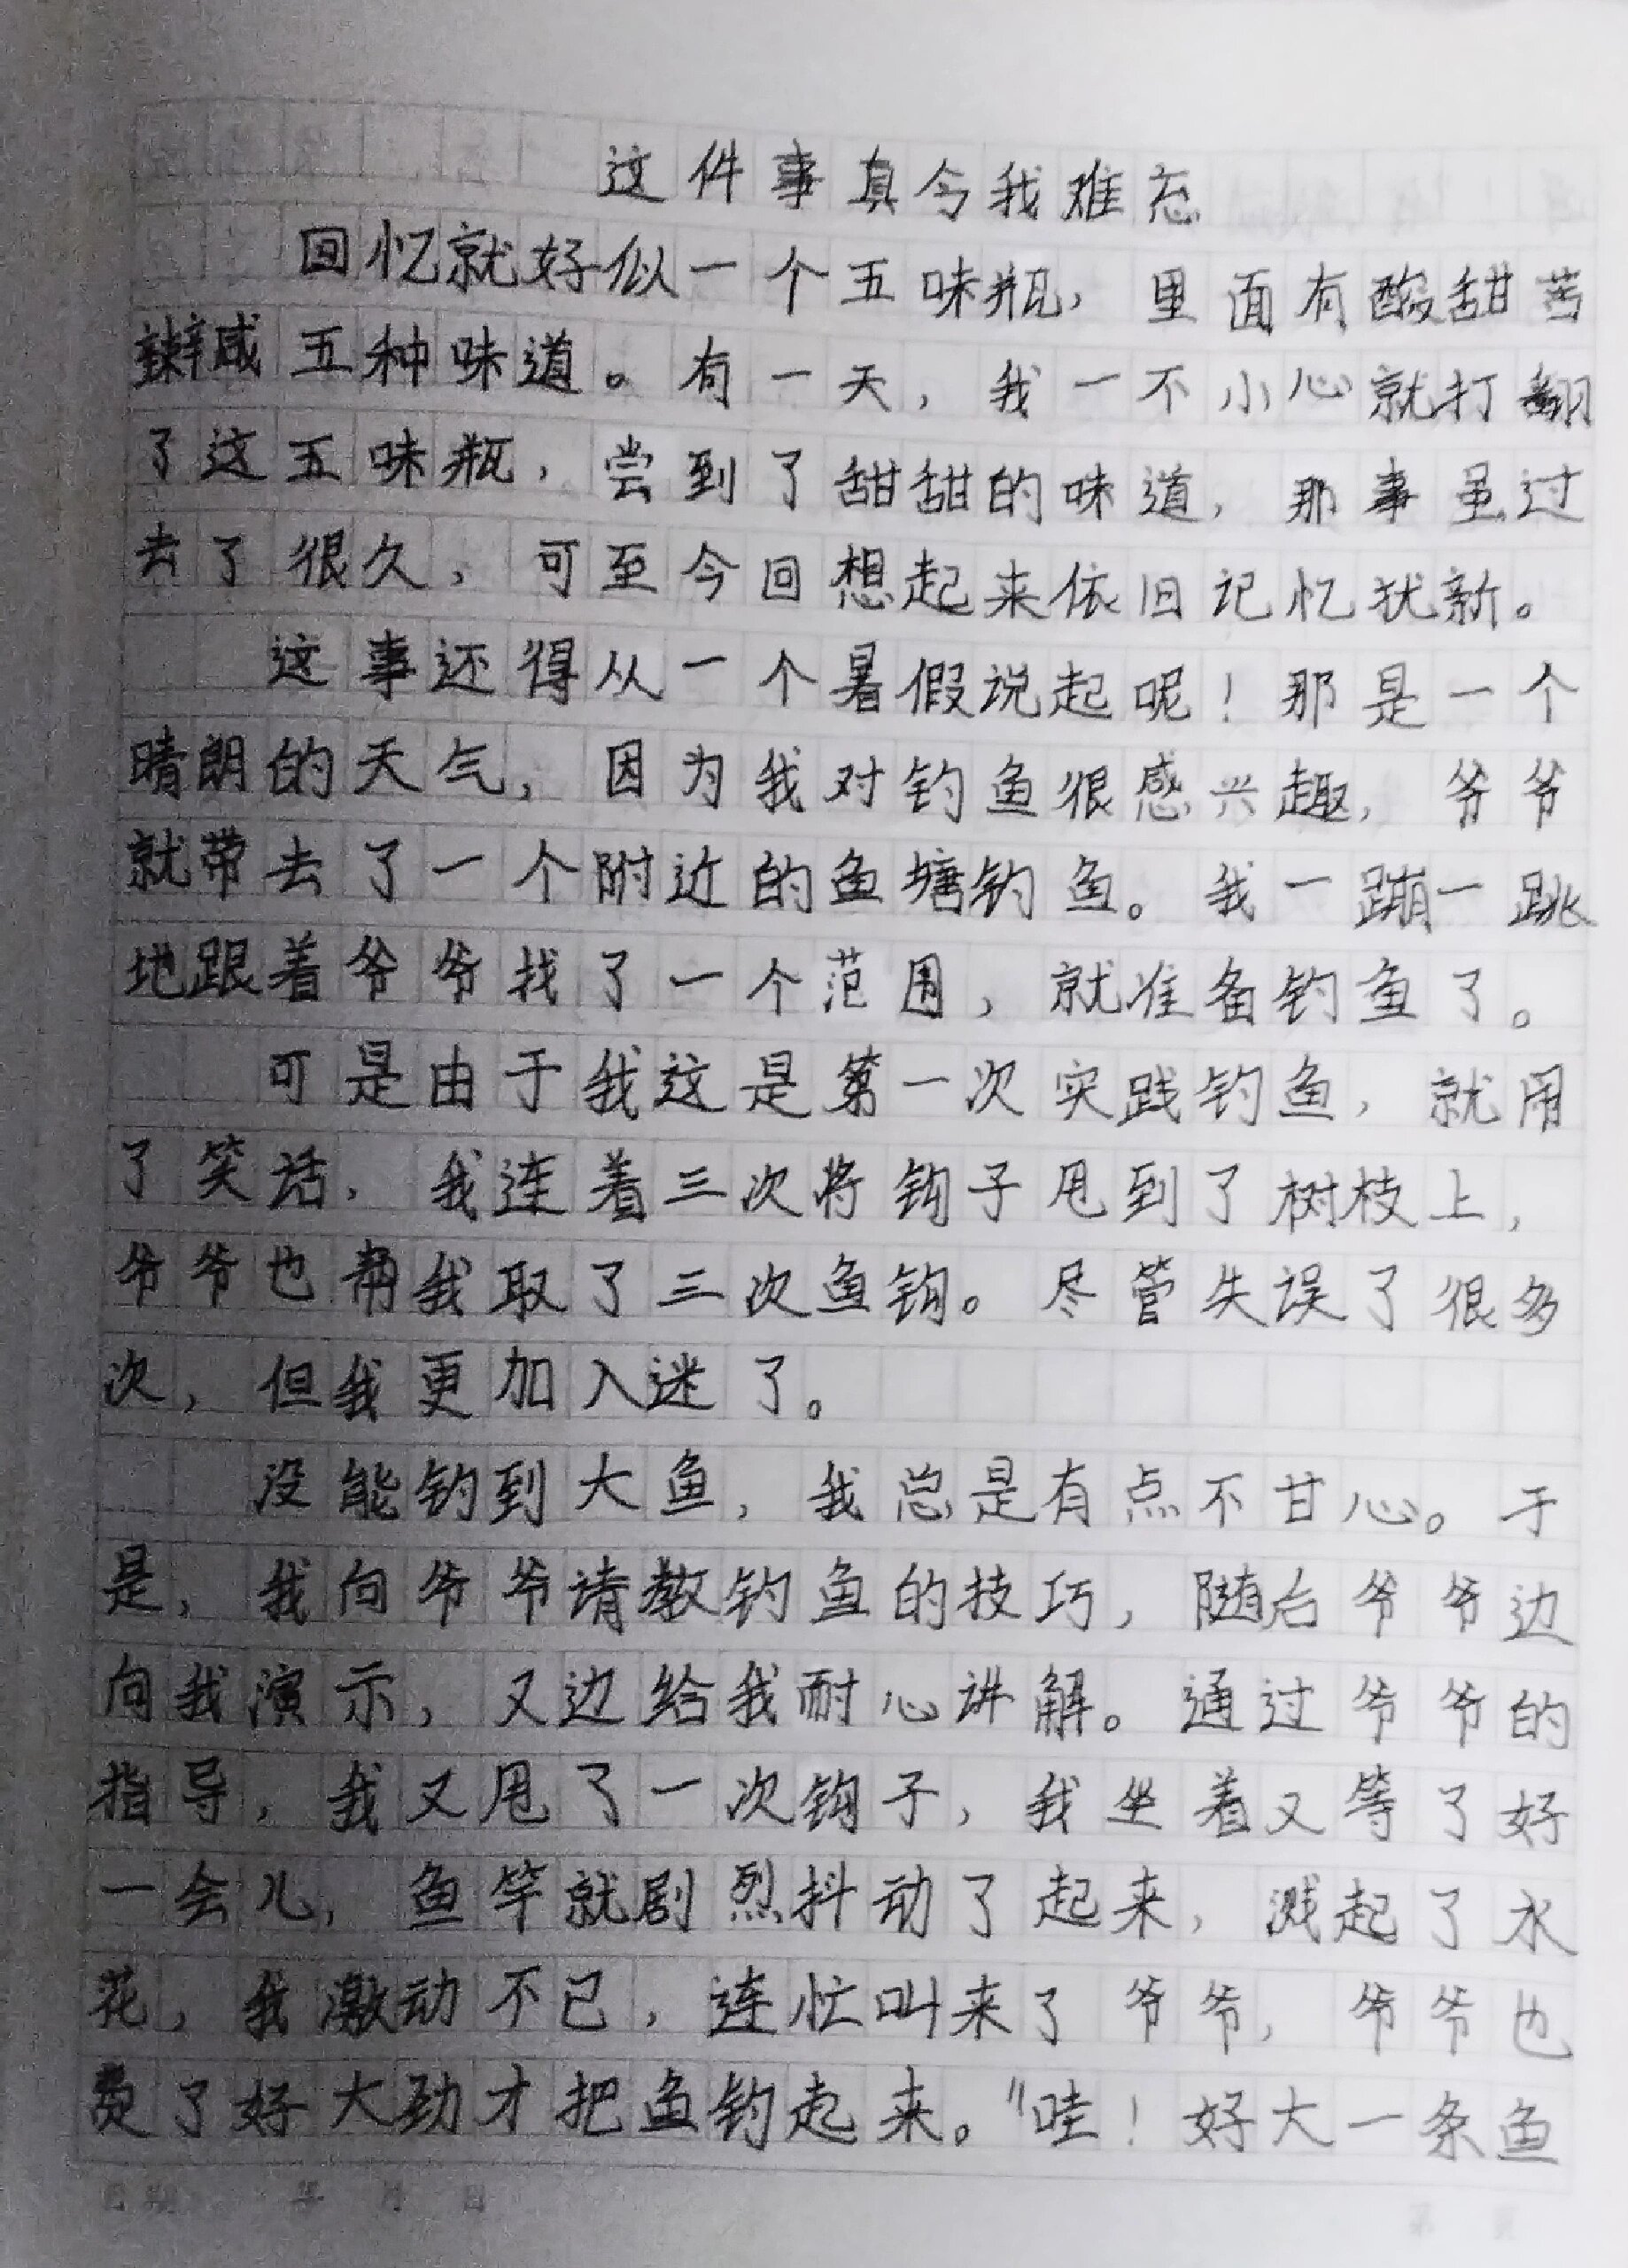 这件事真令我难忘
回忆就好似一个五味瓶，里面有酸甜苦
辣咸五种味道。有一天，我一不小心就打翻
了这五味瓶，尝到了甜甜的味道，那事虽过
去了很久，可至今回想起来依旧记忆犹新。
这事还得从一个暑假说起呢！那是一个
晴朗的天气，因为我对钓鱼很感兴趣，爷爷
就带去了一个附近的鱼塘钓鱼。我一蹦一跳
地跟着爷爷找了一个范围，就准备钓鱼了。
可是由于我这是第一次实践钓鱼，就闹
了笑话，我连着三次将钩子甩到了树枝上，
爷爷也帮我取了三次鱼钩。尽管失误了很多
次，但我更加入迷了。
没能钓到大鱼，我总是有点不甘心。于
是，我向爷爷请教钓鱼的技巧，随后爷爷边
向我演示，又边给我耐心讲解。通过爷爷的
指导，我又甩了一次钩子，我坐着又等了好
一会儿，鱼竿就剧烈抖动了起来，溅起了水
花，我激动不已，连忙叫来了爷爷，爷爷也
费了好大劲才把鱼钓起来。“哇！好大一条鱼
年 月 日